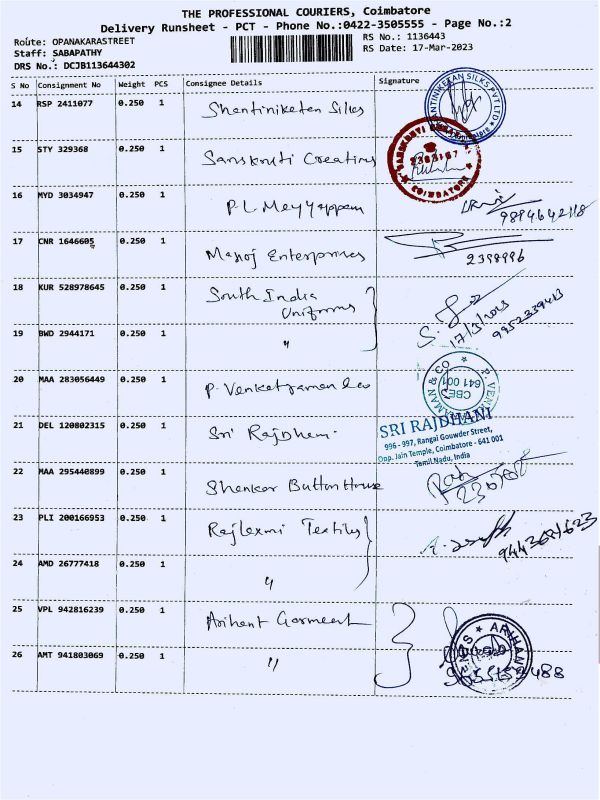 THE PROFESSIONAL COURIERS, Coimbatore
Delivery Runsheet - PCT - Phone No.:0422-3505555 - Page No.:2
Route: OPANAKARASTREET
RS No.: 1136443
Staff: SABAPATHY
RS Date: 17-Mar-2023
DRS No.: DCJB113644302
S No Consignment No Weight PCS Consignee Details Signature
14 RSP 2411077 0.250 1 Shantiniketan Silks
15 STY 329368 0.250 1 Sanskruti Creations
COIMBATORE
16 MYD 3034947 0.250 1 P L Meyyappan
9894642118
17 CNR 1646605 0.250 1 Manoj Enterprises
2398996
18 KUR 528978645 0.250 1 South India
Uniforms
17/3/2023
9952339413
19 BWD 2944171 0.250 1 "
20 MAA 283056449 0.250 1 P. Venkatraman & Co
CBE
641 001
21 DEL 120802315 0.250 1 Sri Rajdhani
SRI RAJDHANI
996 - 997, Rangai Gouwder Street,
Opp. Jain Temple, Coimbatore - 641 001
Tamil Nadu, India
22 MAA 295440899 0.250 1 Shankar Button House
23 PLI 200166953 0.250 1 Rajlaxmi Textiles
24 AMD 26777418 0.250 1 "
25 VPL 942816239 0.250 1 Arihant Garment
26 AMT 941803069 0.250 1 "